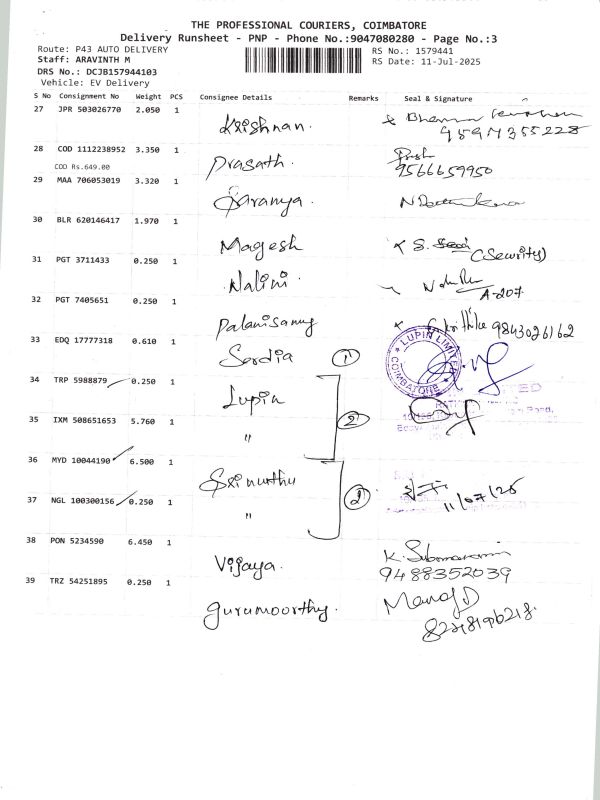 THE PROFESSIONAL COURIERS, COIMBATORE
Delivery Runsheet - PNP - Phone No.:9047080280 - Page No.:3
Route: P43 AUTO DELIVERY
RS No.: 1579441
Staff: ARAVINTH M
RS Date: 11-Jul-2025
DRS No.: DCJB157944103
Vehicle: EV Delivery
S No Consignment No Weight PCS Consignee Details Remarks Seal & Signature
27 JPR 503026770 2.050 1 Krishnan.
9597355228
28 COD 1112238952 3.350 1 Prasath.
COD Rs.649.00
9566659950
29 MAA 706053019 3.320 1 Saranya.
30 BLR 620146417 1.970 1 Magesh
(Security)
31 PGT 3711433 0.250 1 Nalini
A-207
32 PGT 7405651 0.250 1 Palanisamy
9843026162
33 EDQ 17777318 0.610 1 Serdia 1
LUPIN LIMITED
COIMBATORE
34 TRP 5988879 0.250 1 Lupin
2
35 IXM 508651653 5.760 1 "
36 MYD 10044190 6.500 1 Sri nurthu
2
11/07/25
37 NGL 100300156 0.250 1 "
38 PON 5234590 6.450 1 Vijaya.
K. Subramaniam
9488352039
39 TRZ 54251895 0.250 1 Gurumoorthy.
Manoj D